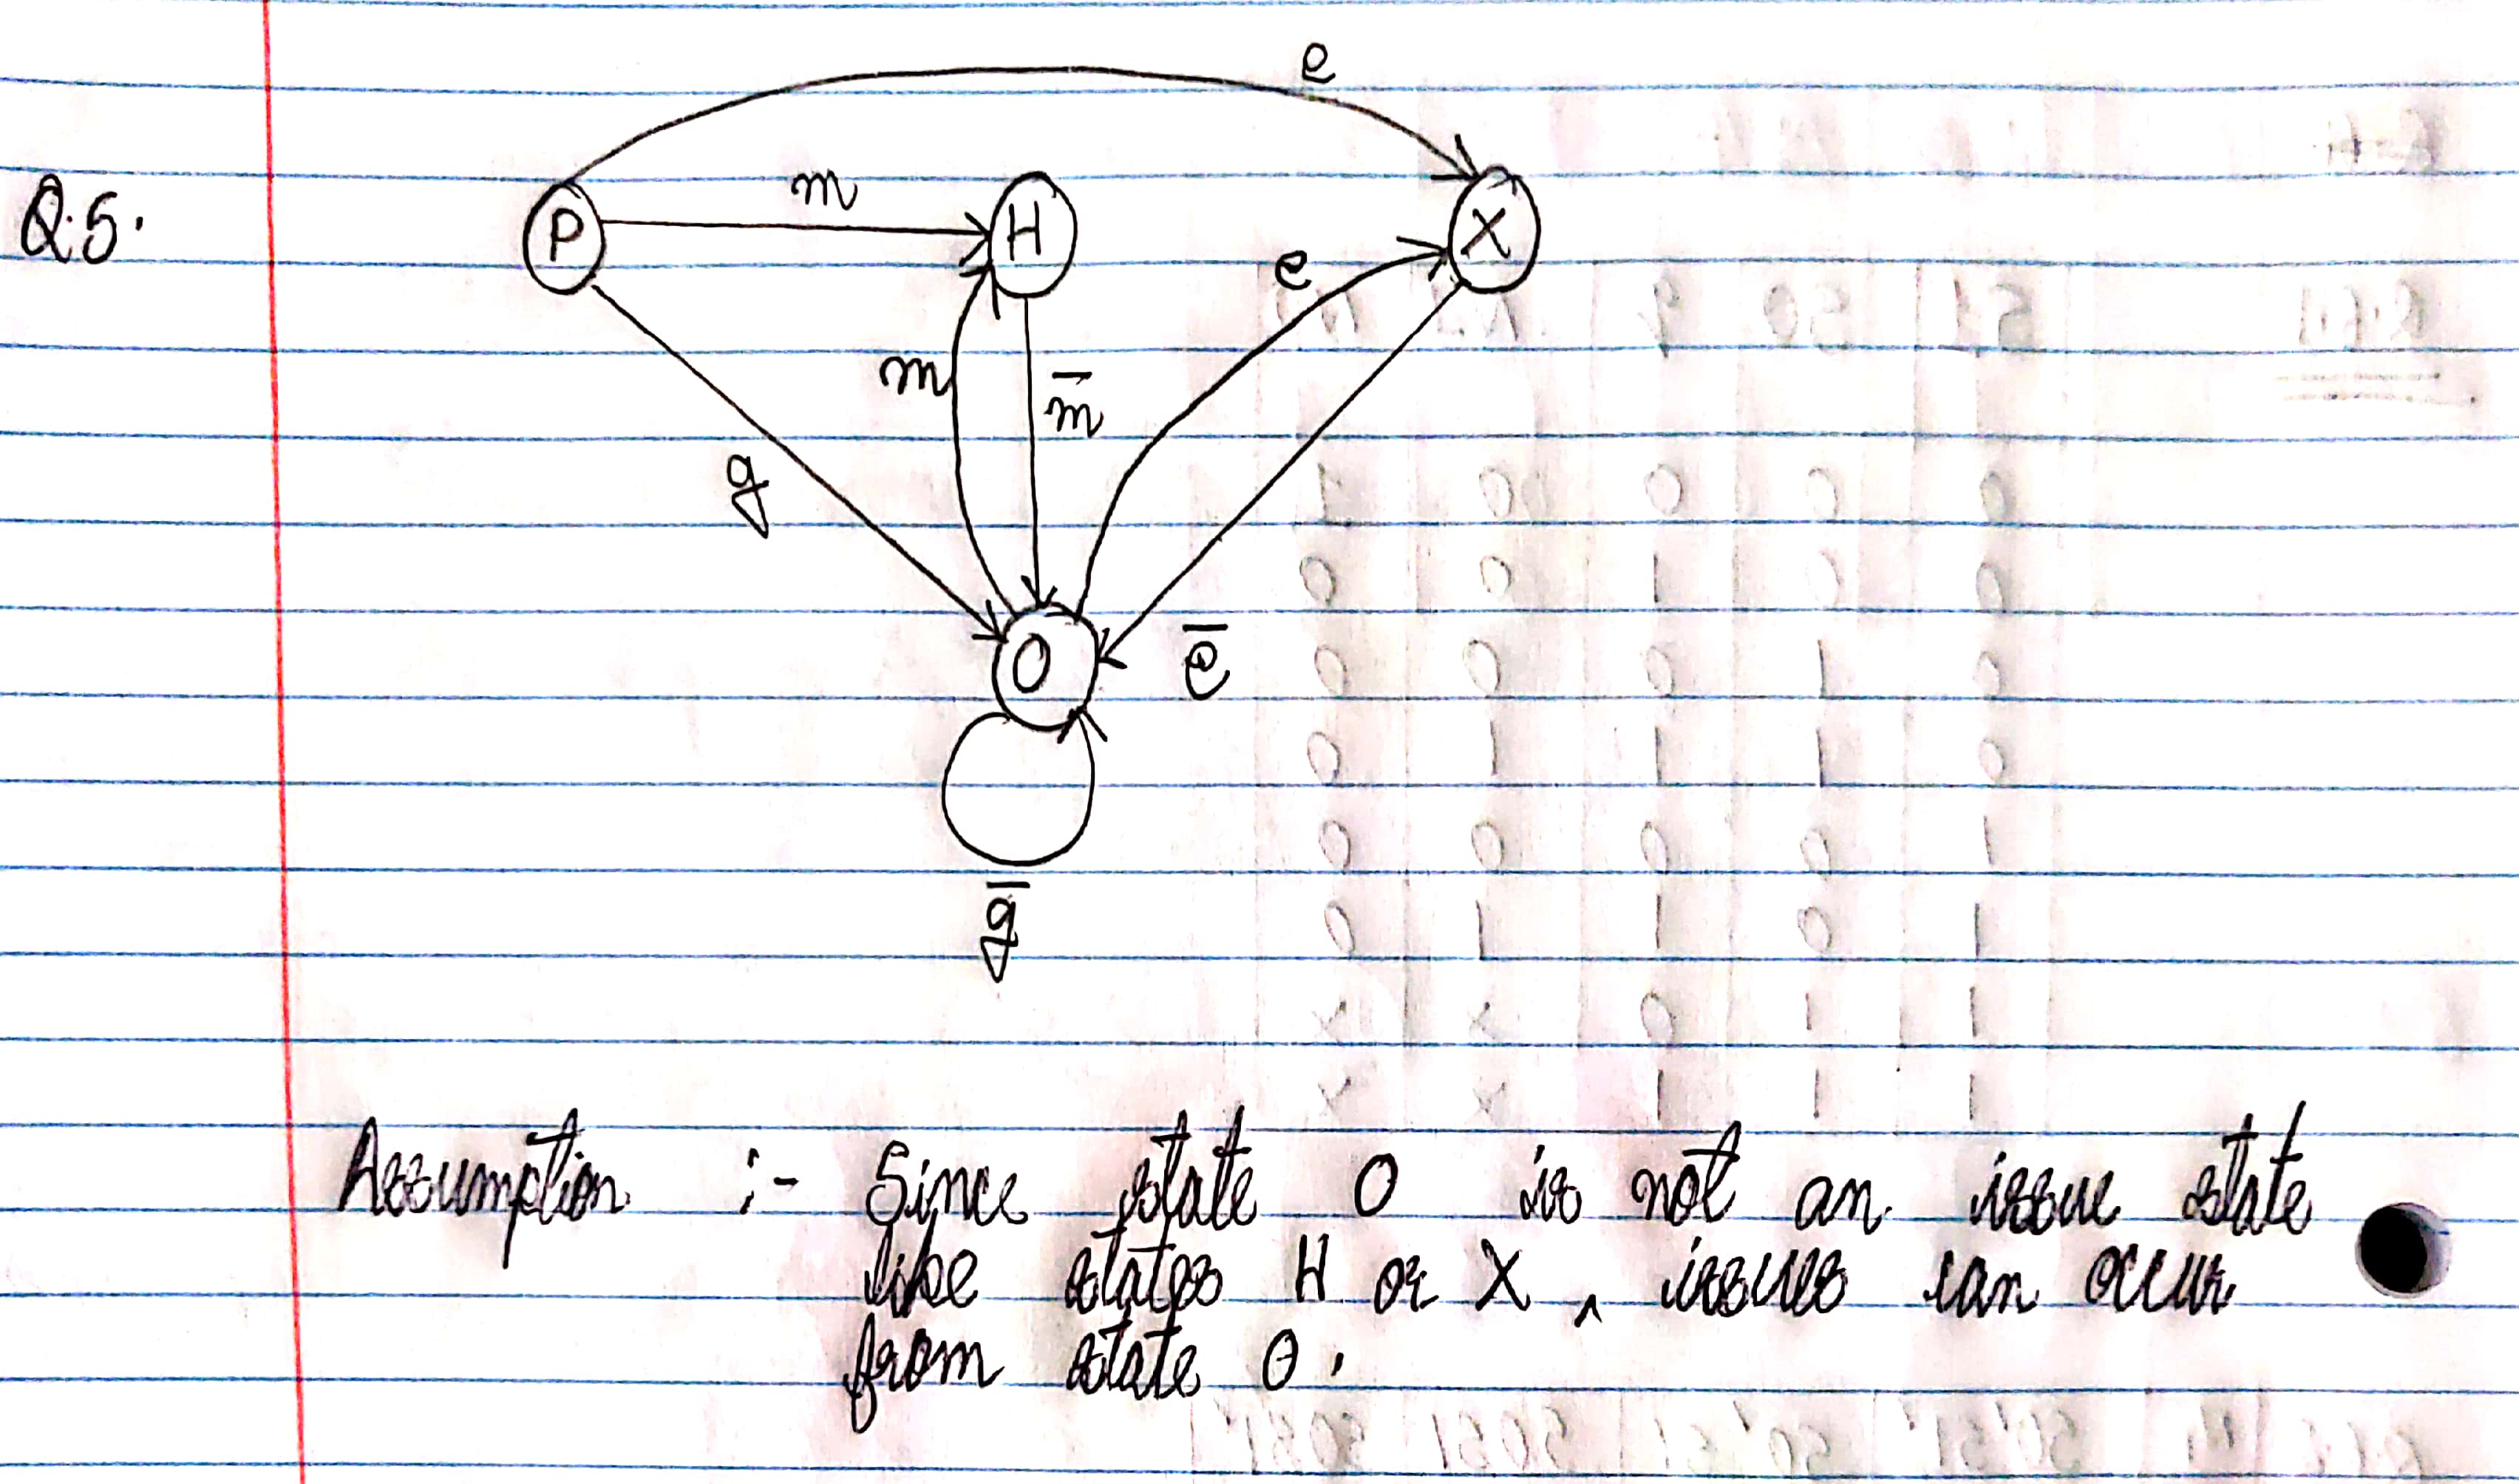 e
Q.5.
P
m
H
X
e
m
m̅
g
O
e̅
g̅
Assumption :- Since state O is not an issue state
like states H or X ^ issues can occur
from state O.